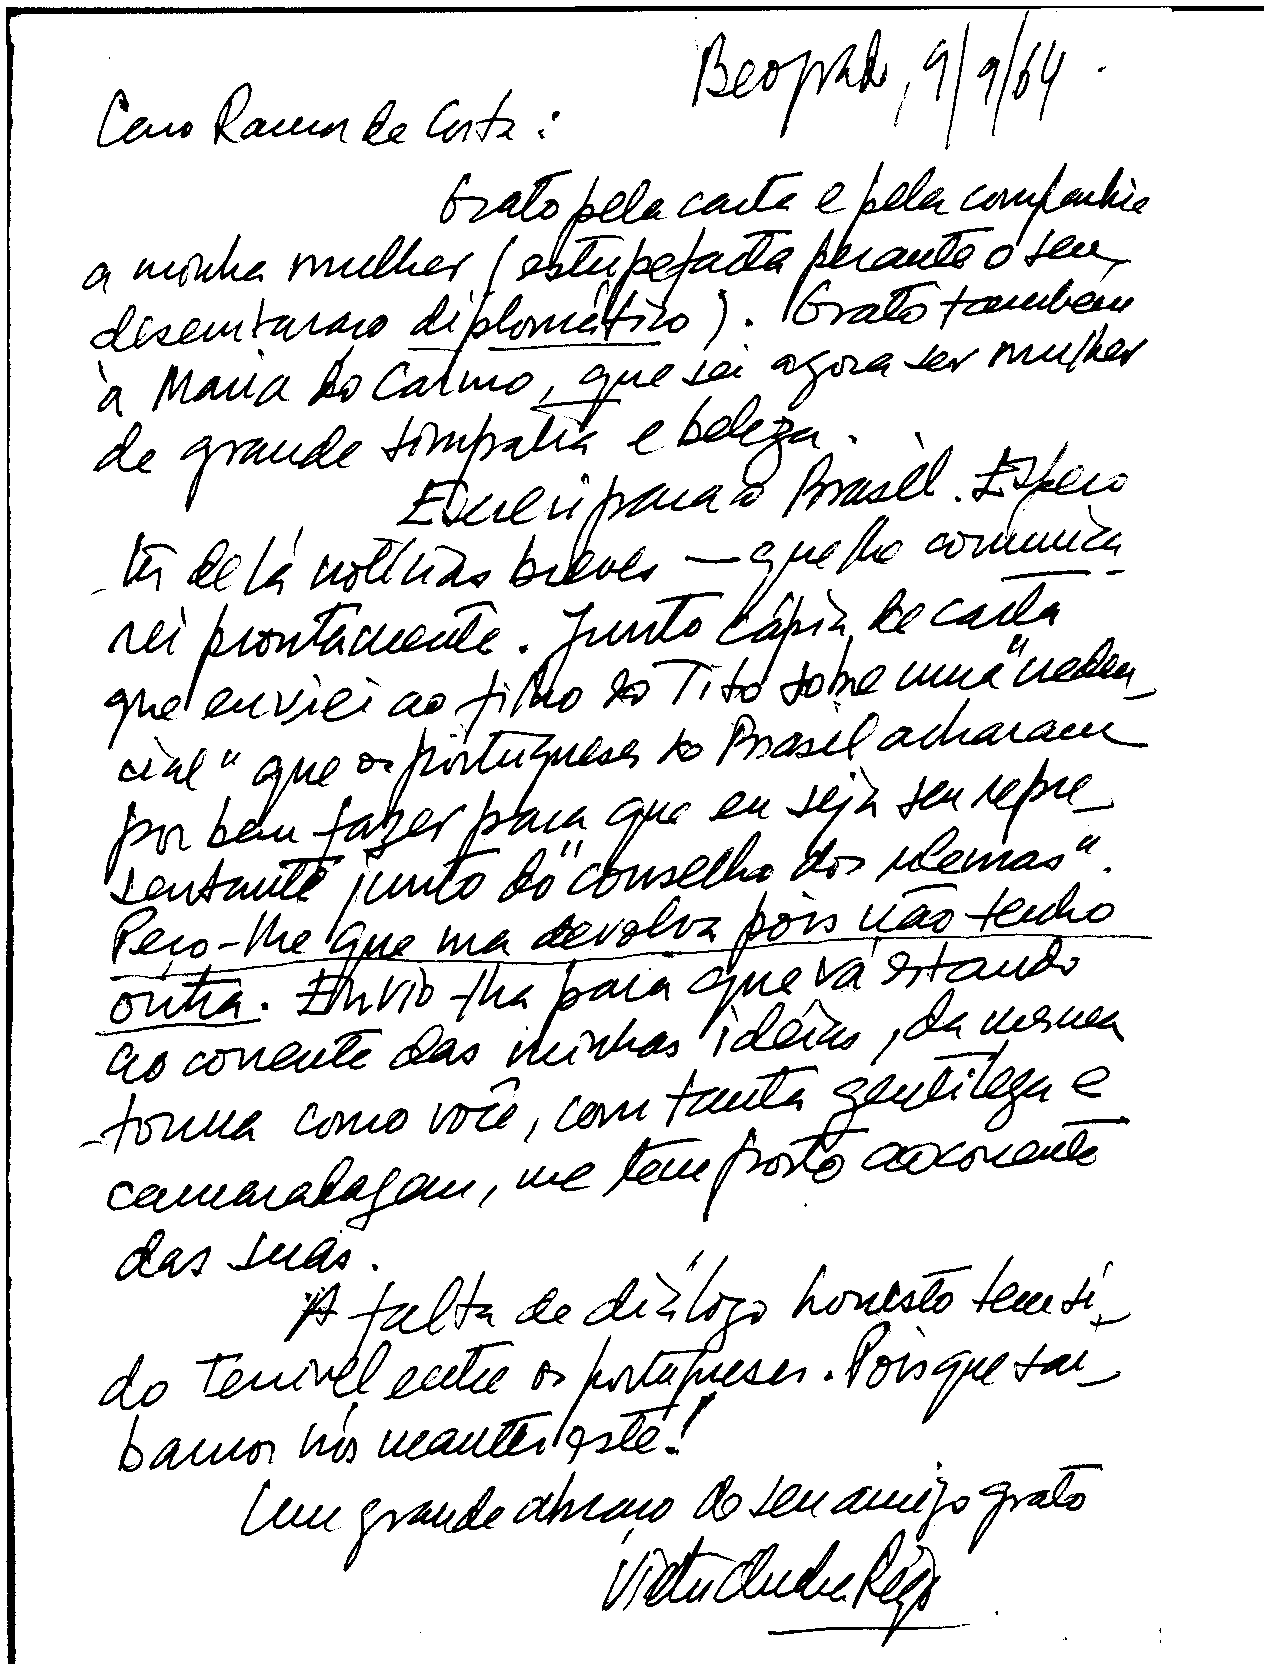 Beograd, 9/9/64.
Caro Ramos da Costa:
Grato pela carta e pela companhia
a minha mulher (estupefacta perante o seu
desembaraço diplomático). Grato também
à Maria do Carmo, que sei agora ser mulher
de grande simpatia e beleza.
Escrevi para o Brasil. Espero
ter de lá notícias breves — que lhe comunica
rei prontamente. Junto cópia de carta
que enviei ao filho do Tito sobre uma "creden_
cial" que os portugueses do Brasil acharam
por bem fazer para que eu seja seu repre_
sentante junto do "conselho dos
Peço-lhe que ma devolva pois não tenho
outra. Envio-lha para que vá estando
ao corrente das minhas idéias, da mesma
forma como você, com tanta gentileza e
camaradagem, me tem posto ao corrente
das suas.
A falta de diálogo honesto tem si_
do terrível entre os portugueses. Pois que sai_
bamos nós manter este!
Um grande abraço do seu amigo grato